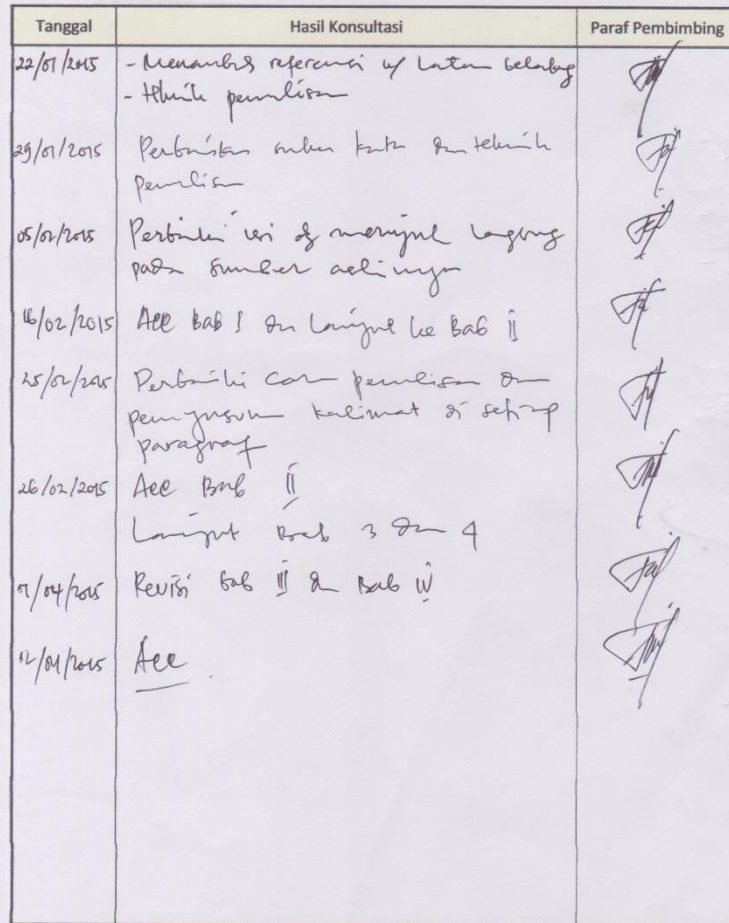 Tanggal Hasil Konsultasi Paraf Pembimbing
22/01/2015 - Menambah referensi u/ Latar belakang
- tehnik penulisan
29/01/2015 Perbaikan suku kata dan tehnik
penulisan
05/02/2015 Perbaiki isi dg merujuk langsung
pada sumber aslinya
16/02/2015 Acc Bab I dan lanjut ke Bab II
25/02/2015 Perbaiki cara penulisan dan
penyusunan kalimat di setiap
paragraf
26/02/2015 Acc Bab II
Lanjut Bab 3 dan 4
/04/2015 Revisi bab III dan Bab IV
/04/2015 Acc